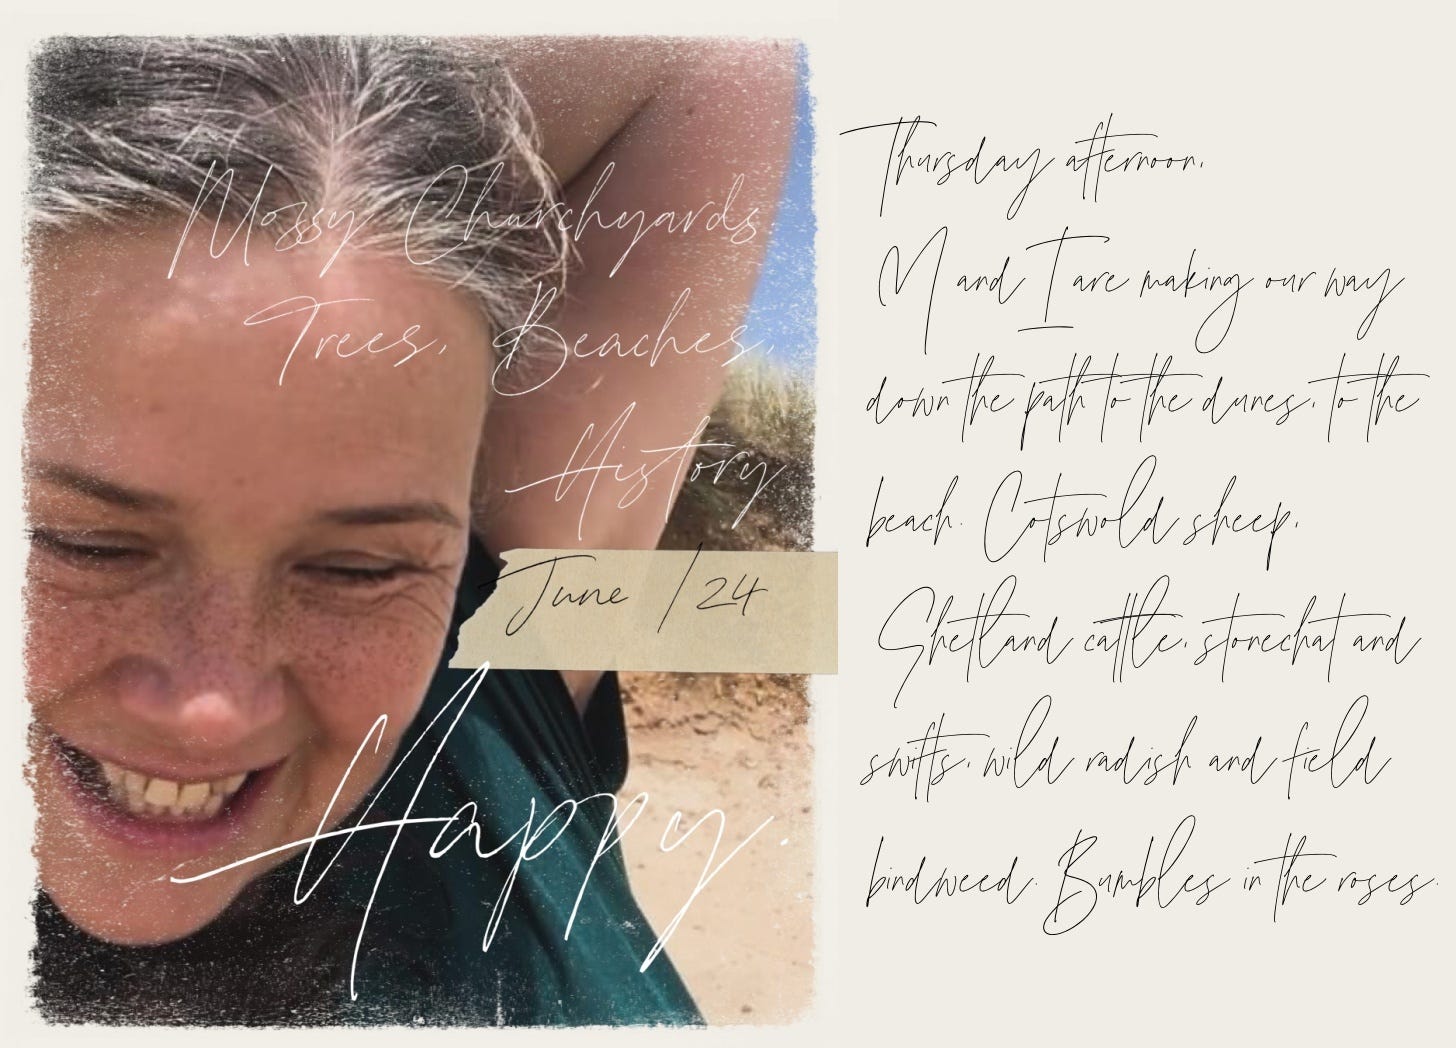 Mossy Churchyards.
Trees, Beaches,
History
June /24
Happy.
Thursday afternoon.
M and I are making our way
down the path to the dunes, to the
beach. Cotswold sheep,
Shetland cattle, stonechat and
swifts, wild radish and field
bindweed. Bumbles in the roses.